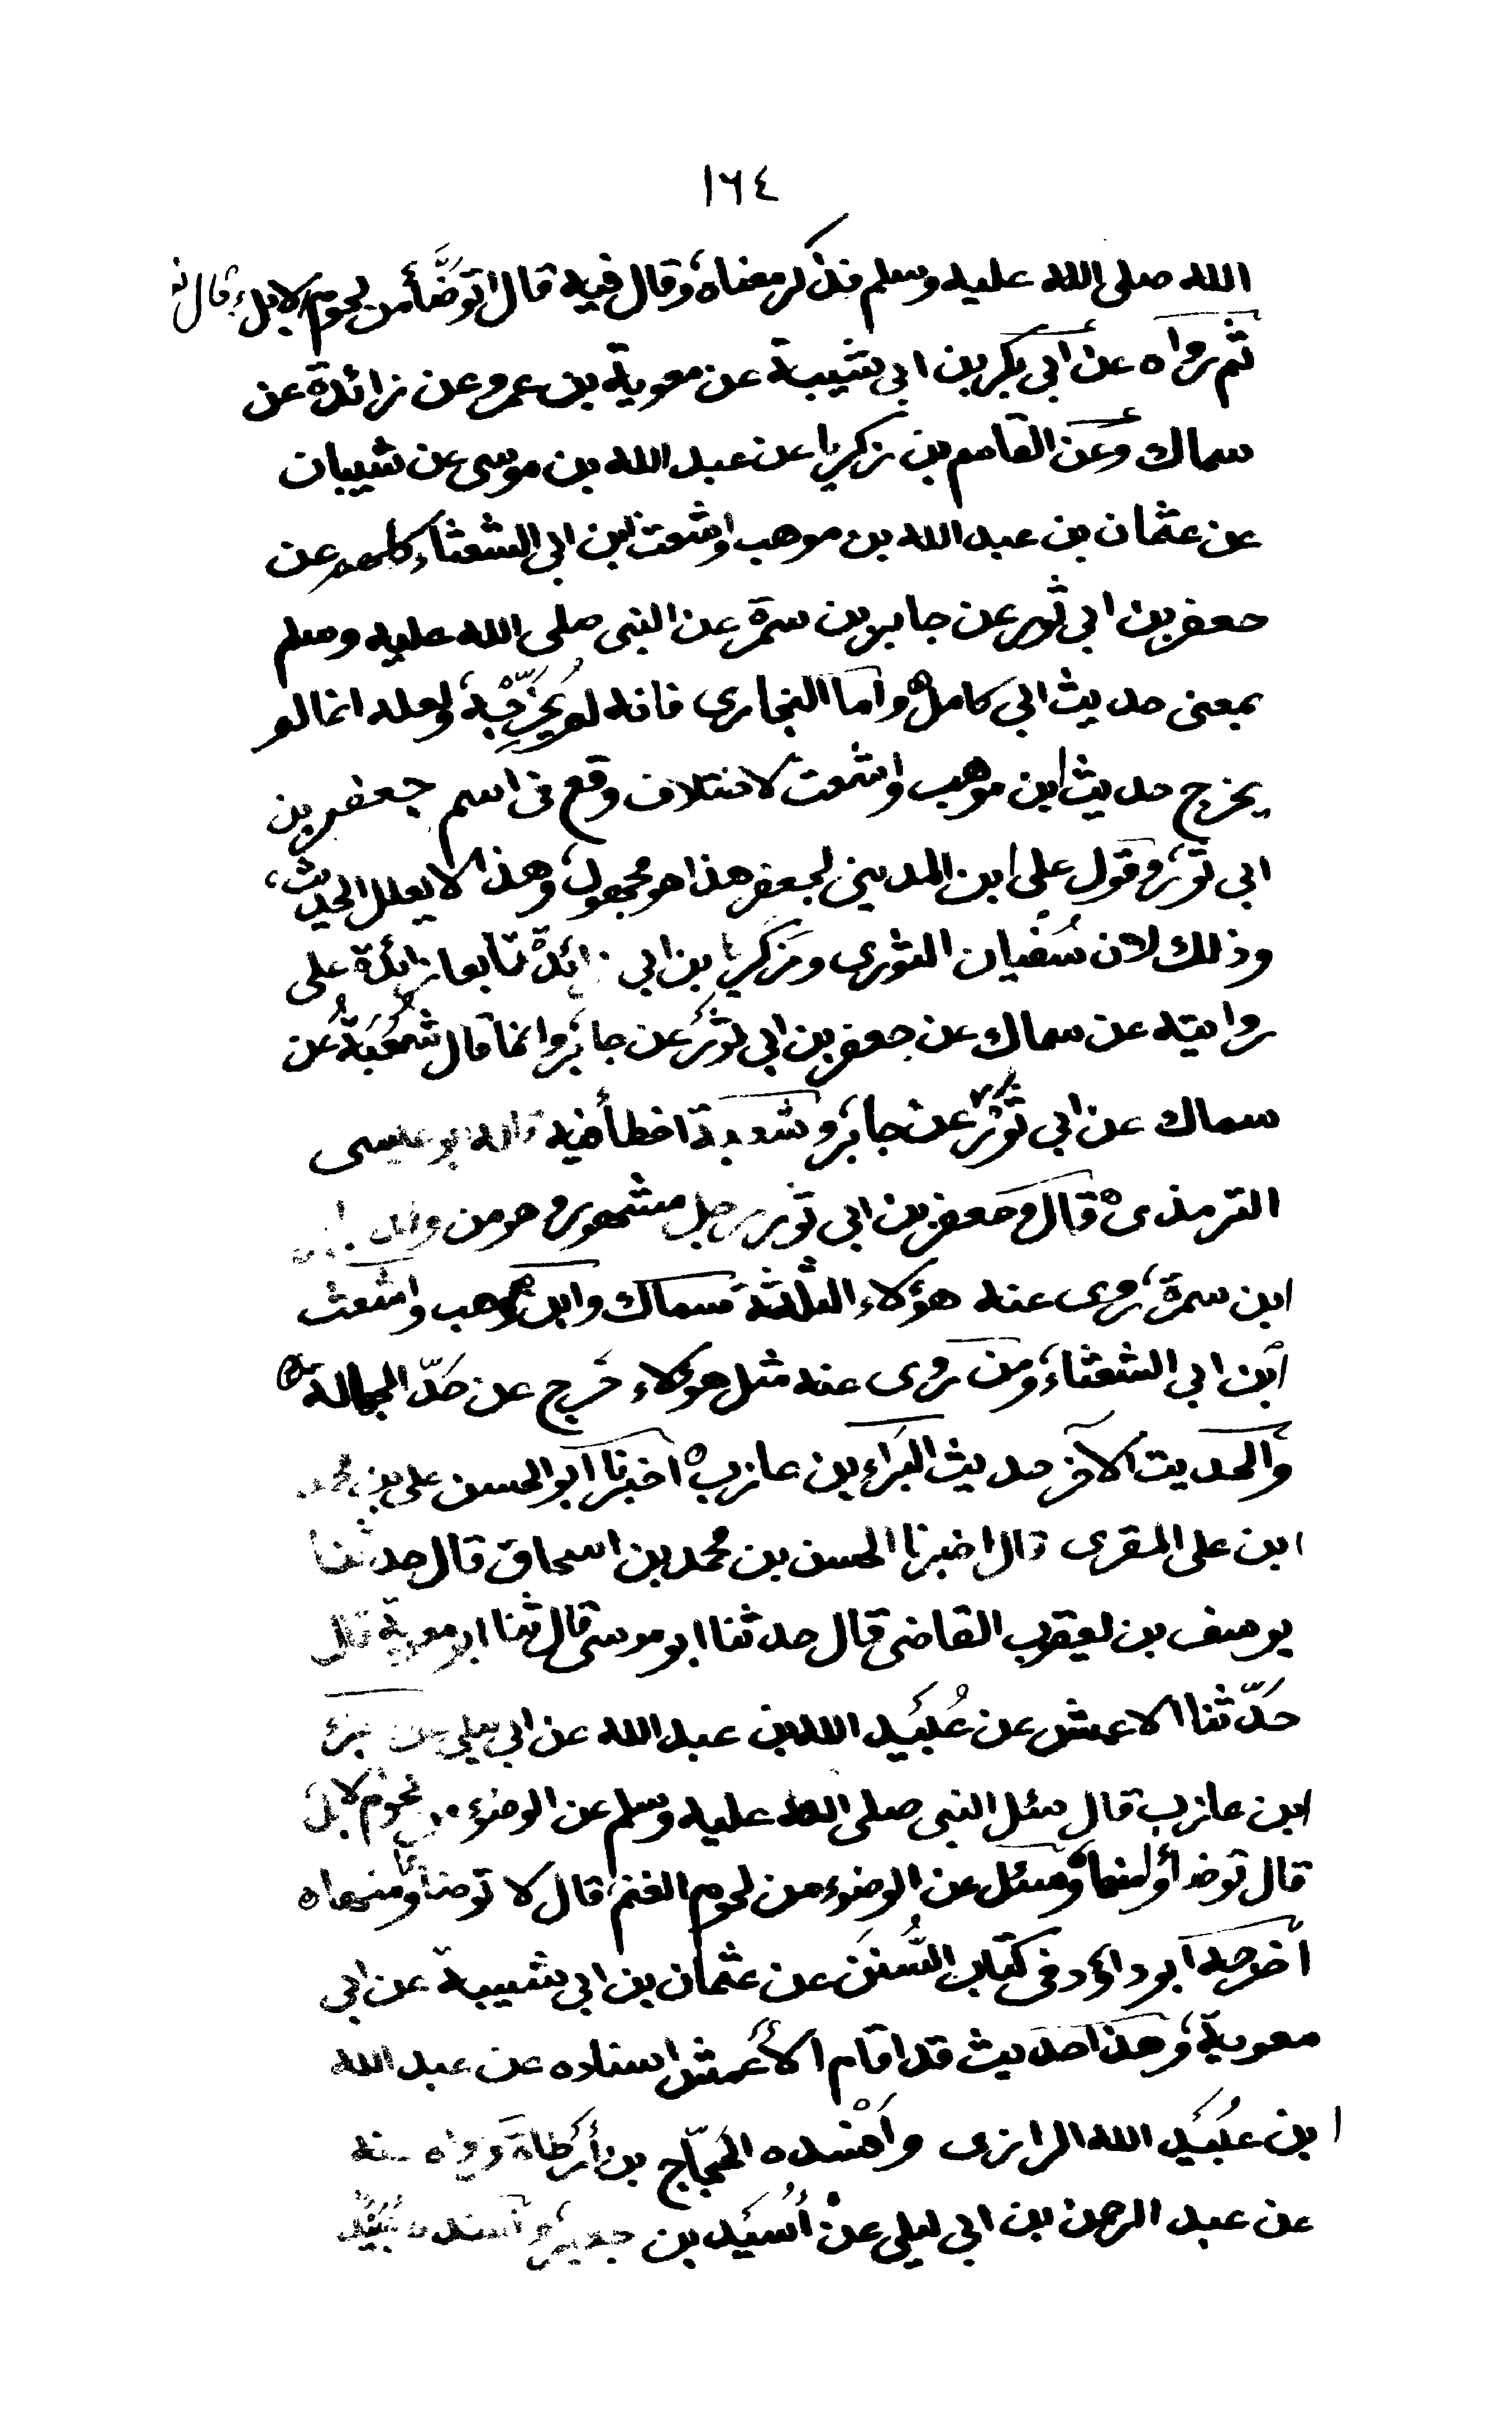 ١٦٤
الله صلى الله عليه وسلم فذكر معناه، وقال فيه قال اتوضّأ من لحوم الابل، قال
ثم رواه عن ابي بكر بن ابي شيبة عن معوية بن عمرو عن زائدة عن
سماك وعن القاسم بن زكريا عن عبد الله بن موسى عن شيبان
عن عثمان بن عبد الله بن موهب واشعث بن ابي الشعثاء كلهم عن
جعفر بن ابي ثور عن جابر بن سمرة عن النبى صلى الله عليه وسلم
بمعنى حديث ابي كامل ٥ واما البخارى فانه لم يخرّجه، ولعله انما لم
يخرج حديث ابن موهب واشعث لاختلاف وقع فى اسم جعفر بن
ابي ثور، وقول على ابن المديني لجعفر هذا هو مجهول، وهذا لا يعلل الحديث،
وذلك لان سُفيان الثورى وزكريا بن ابى زائدة تابعا زائدة على
روايته عن سماك عن جعفر بن ابي ثور عن جابر، وانما قال شُعْبَةُ عن
سماك عن ابي ثور عن جابر، وشعبة اخطأ فيه قاله ابو عيسى
الترمذى ٥ قال وجعفر بن ابى ثور رجل مشهور وهو من ولد جابر
ابن سمرة، روى عنه هؤلاء الثلثة سماك وابن موهب واشعث
ابن ابي الشعثاء، ومن روى عنه مثل هولاء خَرج عن حَدّ الجهالة ٥
والحديث الآخر حديث البَراءِ بن عازب ٥ اخبرنا ابو الحسن على بن محمد
ابن على المقرى قال اخبرنا الحسن بن محمد بن اسحاق قال حدثنا
يوسف بن يعقوب القاضى قال حدثنا ابو موسى قال ثنا ابو معوية قال
حَدّثنا الاعمش عن عُبَيد الله بن عبد الله عن ابي ليلى عن البراء
ابن عازب قال سئل النبى صلى الله عليه وسلم عن الوضوء من لحوم الابل،
قال توضأوا منها، وسئل عن الوضوء من لحوم الغنم، قال لا توضأوا منها ٥
أخرجه ابو داؤد فى كتاب السُّنَن عن عثمان بن ابي شيبة عن ابي
معوية، وهذا حديث قد اقام الأعمش اسناده عن عبد الله
ابن عُبَيد الله الرازى وافسده الحَجّاج بن أرطاة ورواه عنه
عن عبد الرحمن بن ابي ليلى عن أُسَيد بن حضير، وافسده عُبَيْدَة